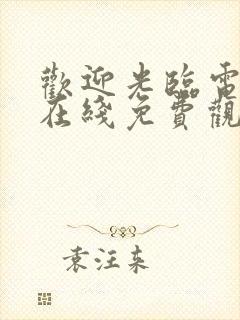 歡迎光臨電
在綫免費觀
袁汪东